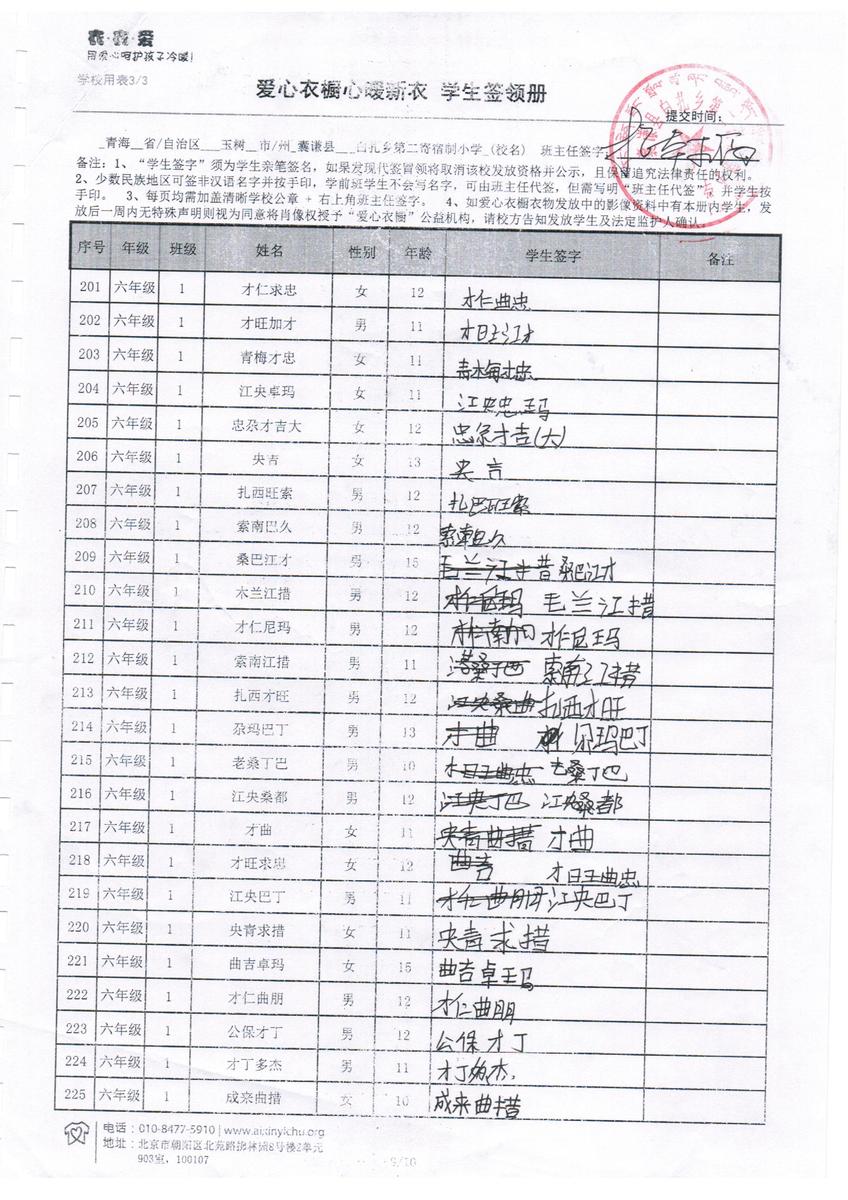 用爱心呵护孩子冷暖!
学校用表3/3
爱心衣橱心暖新衣 学生签领册
提交时间：
_青海__省/自治区___玉树__市/州_囊谦县___白扎乡第二寄宿制小学_(校名) 班主任签字
备注：1、“学生签字”须为学生亲笔签名，如果发现代签冒领将取消该校发放资格并公示，且保留追究法律责任的权利。
2、少数民族地区可签非汉语名字并按手印，学前班学生不会写名字，可由班主任代签，但需写明“班主任代签”，并学生按
手印。 3、每页均需加盖清晰学校公章 + 右上角班主任签字。 4、如爱心衣橱衣物发放中的影像资料中有本册内学生，发
放后一周内无特殊声明则视为同意将肖像权授予“爱心衣橱”公益机构，请校方告知发放学生及法定监护人确认。
序号 年级 班级 姓名 性别 年龄 学生签字 备注
201 六年级 1 才仁求忠 女 12 才仁曲忠
202 六年级 1 才旺加才 男 11 才旺江才
203 六年级 1 青梅才忠 女 11 青梅才忠
204 六年级 1 江央卓玛 女 11 江央忠玛
205 六年级 1 忠尕才吉大 女 12 忠尕才吉(大)
206 六年级 1 央吉 女 13 央吉
207 六年级 1 扎西旺索 男 12 扎巴旺索
208 六年级 1 索南巴久 男 12 索南巴久
209 六年级 1 桑巴江才 男 15 毛兰江措 桑巴江才
210 六年级 1 木兰江措 男 12 才仁尼玛 毛兰江措
211 六年级 1 才仁尼玛 男 12 才仁尼玛
212 六年级 1 索南江措 男 11 索南江措
213 六年级 1 扎西才旺 男 12 江央桑曲 扎西才旺
214 六年级 1 尕玛巴丁 男 13 才曲 尕玛巴丁
215 六年级 1 老桑丁巴 男 10 才旺曲忠 老桑丁巴
216 六年级 1 江央桑都 男 12 江央丁巴 江央桑都
217 六年级 1 才曲 女 11 央青曲措 才曲
218 六年级 1 才旺求忠 女 12 曲吉 才旺曲忠
219 六年级 1 江央巴丁 男 11 才仁曲朋 江央巴丁
220 六年级 1 央青求措 女 11 央青求措
221 六年级 1 曲吉卓玛 女 15 曲吉卓玛
222 六年级 1 才仁曲朋 男 12 才仁曲朋
223 六年级 1 公保才丁 男 12 公保才丁
224 六年级 1 才丁多杰 男 11 才丁多杰.
225 六年级 1 成来曲措 女 10 成来曲措
电话：010-8477-5910 | www.aixinyichu.org
地址：北京市朝阳区北苑路拂林园8号楼2单元
903室，100107